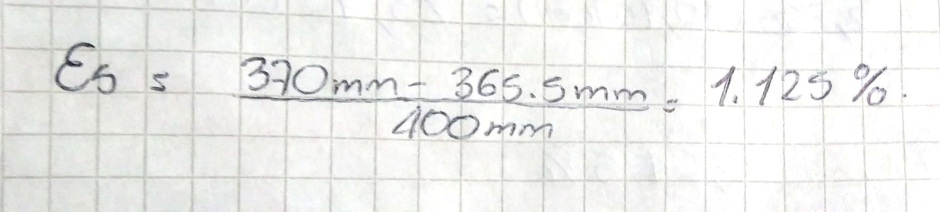 E5 = 370mm - 365.5mm / 400mm = 1.125 %.